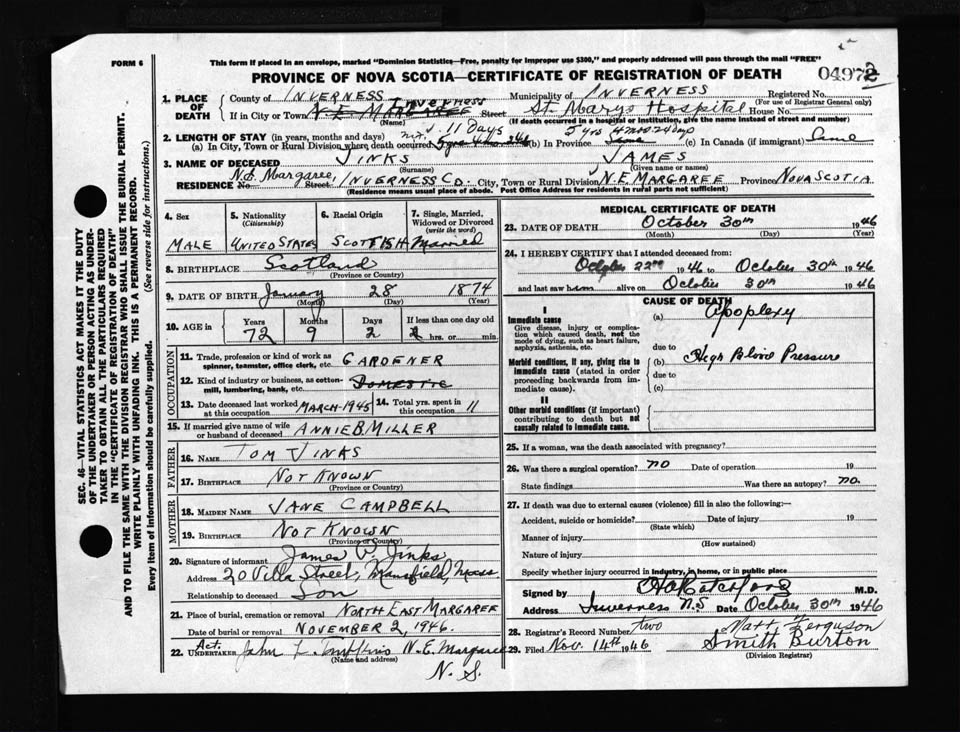 FORM 6
This form if placed in an envelope, marked "Dominion Statistics—Free, penalty for improper use $300," and properly addressed will pass through the mail "FREE"
PROVINCE OF NOVA SCOTIA—CERTIFICATE OF REGISTRATION OF DEATH
04972
SEC. 46—VITAL STATISTICS ACT MAKES IT THE DUTY
OF THE UNDERTAKER OR PERSON ACTING AS UNDER-
TAKER TO OBTAIN ALL THE PARTICULARS REQUIRED
IN THE "CERTIFICATE OF REGISTRATION OF DEATH"
AND TO FILE THE SAME WITH THE DIVISION REGISTRAR WHO SHALL ISSUE THE BURIAL PERMIT.
WRITE PLAINLY WITH UNFADING INK. THIS IS A PERMANENT RECORD.
Every item of information should be carefully supplied. (See reverse side for instructions.)
1. PLACE OF DEATH
County of INVERNESS Municipality of INVERNESS Registered No.
(For use of Registrar General only)
Inverness
If in City or Town N.E. MARGAREE Street St. Marys Hospital House No.
(Name) (If death occurred in a hospital or institution, give the name instead of street and number)
11 days 5 yrs 4 mos 24 days
2. LENGTH OF STAY (in years, months and days)
(a) In City, Town or Rural Division where death occurred 5 yrs 4 mos (b) In Province Same (c) In Canada (if immigrant) Same
3. NAME OF DECEASED JINKS JAMES
(Surname) (Given name or names)
RESIDENCE No. N.E. Margaree, Street INVERNESS CO. City, Town or Rural Division N.E. MARGAREE Province NOVA SCOTIA
(Residence means usual place of abode. Post Office Address for residents in rural parts not sufficient)
4. Sex
MALE
5. Nationality
(Citizenship)
UNITED STATES
6. Racial Origin
SCOTTISH
7. Single, Married,
Widowed or Divorced
(write the word)
Married
8. BIRTHPLACE Scotland
(Province or Country)
9. DATE OF BIRTH January 28 1874
(Month) (Day) (Year)
10. AGE in
Years Months Days If less than one day old
72 9 2 hrs. or min.
OCCUPATION
11. Trade, profession or kind of work as
spinner, teamster, office clerk, etc. GARDENER
12. Kind of industry or business, as cotton-
mill, lumbering, bank, etc. DOMESTIC
13. Date deceased last worked
at this occupation MARCH-1945
14. Total yrs. spent in
this occupation 11
15. If married give name of wife
or husband of deceased ANNIE B. MILLER
FATHER
16. NAME TOM JINKS
17. BIRTHPLACE NOT KNOWN
(Province or Country)
MOTHER
18. MAIDEN NAME JANE CAMPBELL
19. BIRTHPLACE NOT KNOWN
(Province or Country)
20. Signature of informant James P. Jinks
Address 20 Villa Street, Mansfield, Mass
Relationship to deceased Son
21. Place of burial, cremation or removal NORTH EAST MARGAREE
Date of burial or removal NOVEMBER 2, 1946.
22. Act. UNDERTAKER John L. N.E. Margaree
(Name and address)
N.S.
MEDICAL CERTIFICATE OF DEATH
23. DATE OF DEATH October 30th 1946
(Month) (Day) (Year)
24. I HEREBY CERTIFY that I attended deceased from:
October 22nd 1946 to October 30th 1946
and last saw him alive on October 30th 1946
CAUSE OF DEATH
I
Immediate cause
Give disease, injury or complica-
tion which caused death, not the
mode of dying, such as heart failure,
asphyxia, asthenia, etc.
(a) Apoplexy
due to
Morbid conditions, if any, giving rise to
immediate cause (stated in order
proceeding backwards from im-
mediate cause).
(b) High Blood Pressure
due to
(c)
II
Other morbid conditions (if important)
contributing to death but not
causally related to immediate cause.
25. If a woman, was the death associated with pregnancy?
26. Was there a surgical operation? no Date of operation 19
State findings Was there an autopsy? no.
27. If death was due to external causes (violence) fill in also the following:—
Accident, suicide or homicide? Date of injury 19
(State which)
Manner of injury
(How sustained)
Nature of injury
Specify whether injury occurred in industry, in home, or in public place
Signed by M.D.
Address Inverness N.S Date October 30th 1946
28. Registrar's Record Number two
Matt. Ferguson
29. Filed Nov. 14th 1946 Smith Burton
(Division Registrar)